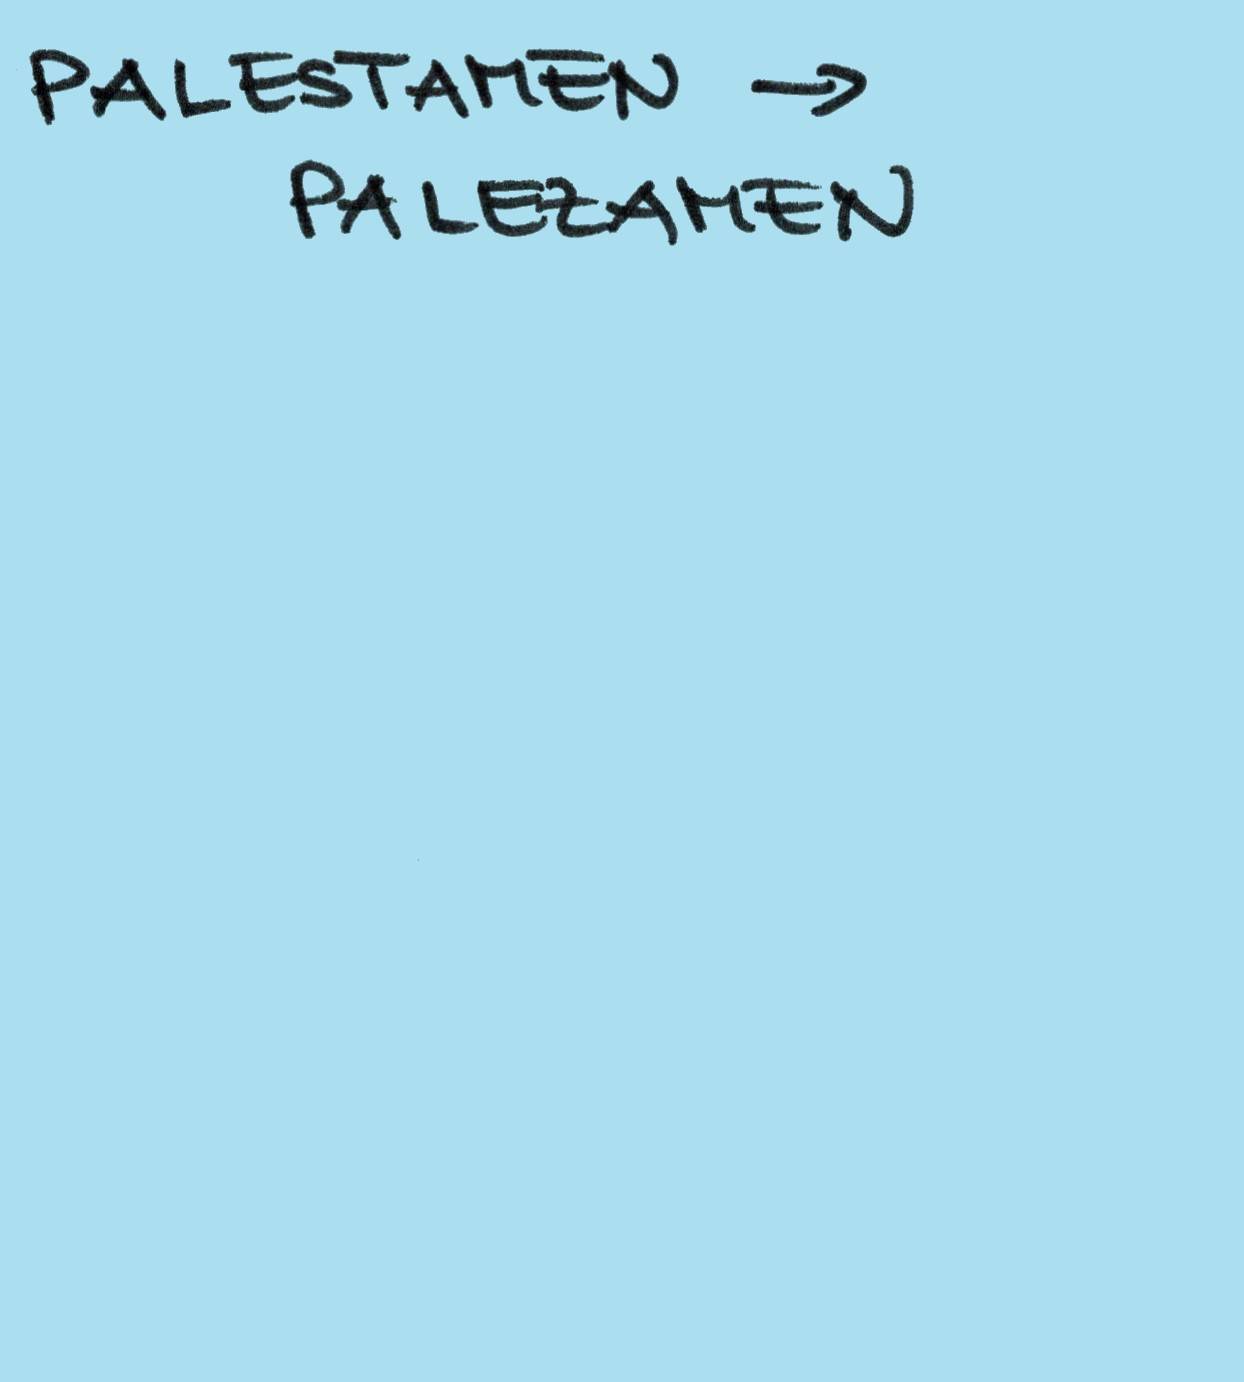 PALESTAMEN →
PALEZAMEN